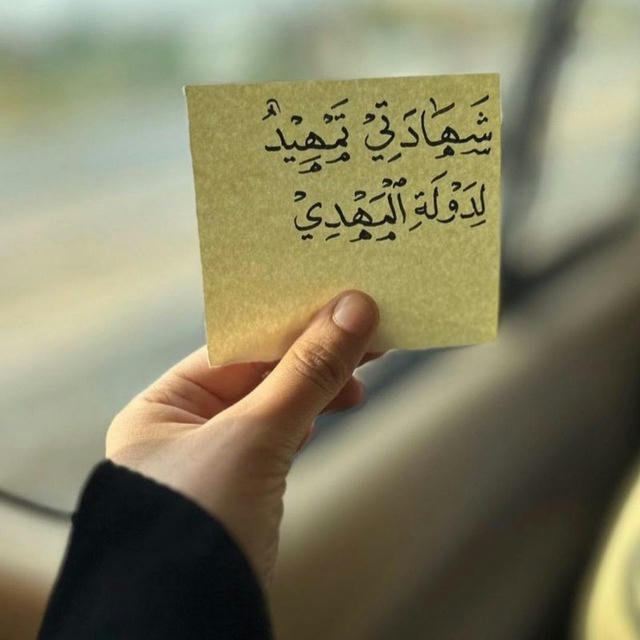 شَهَادَتِيْ تَمْهِيْدُ
لِدَوْلَةِ الْمَهْدِيْ